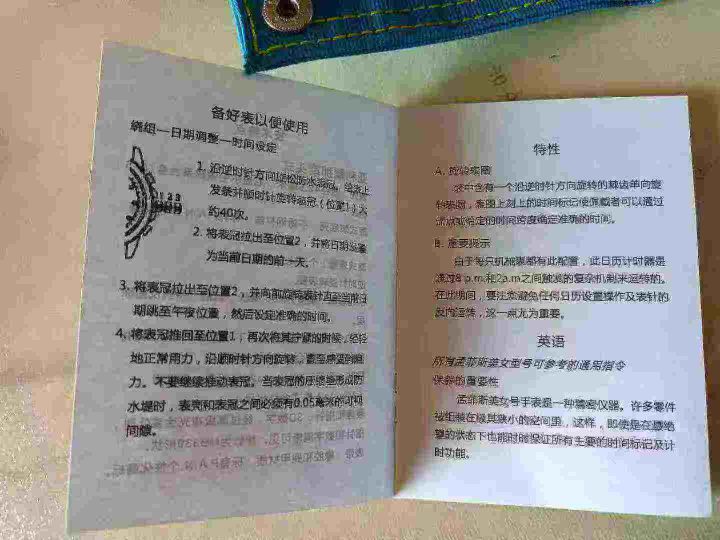 备好表以便使用
绕组—日期调整—时间设定
1 2 3
1. 沿逆时针方向旋松防水表冠。给表上
发条并顺时针旋转表冠（位置1）大
约40次。
2. 将表冠拉出至位置2，并将日期设置
为当前日期的前一天。
3. 将表冠拉出至位置2，并向前旋转表针直至当前日
期跳至午夜位置，然后设定准确的时间。
4. 将表冠推回至位置1，再次将其拧紧的时候，轻轻
地正常用力，沿顺时针方向旋转，直至感到阻
力。不要继续推动表冠。当表冠的压缩垫形成防
水堤时，表壳和表冠之间必须有0.05毫米的可视
间隙。
特性
A. 旋转表圈
这中含有一个沿逆时针方向旋转的棘齿单向旋
转表圈，表圈上刻上的时间标记使佩戴者可以通过
时间跨度确定准确的时间。
B. 重要提示
由于每只机械表都有此配置，此日历计时器是
通过8 p.m.和2a.m之间触发的复杂机制来运转的。
在此期间，要注意避免任何日历设置操作及表针的
反向运转，这一点尤为重要。
英语
所有孟菲斯美女型号可参考的通用指令
保养的重要性
孟菲斯美女号手表是一种精密仪器。许多零件
被组装在极其狭小的空间里，这样，即使是在最绝
望的状态下也能时时保证所有主要的时间标记及计
时功能。